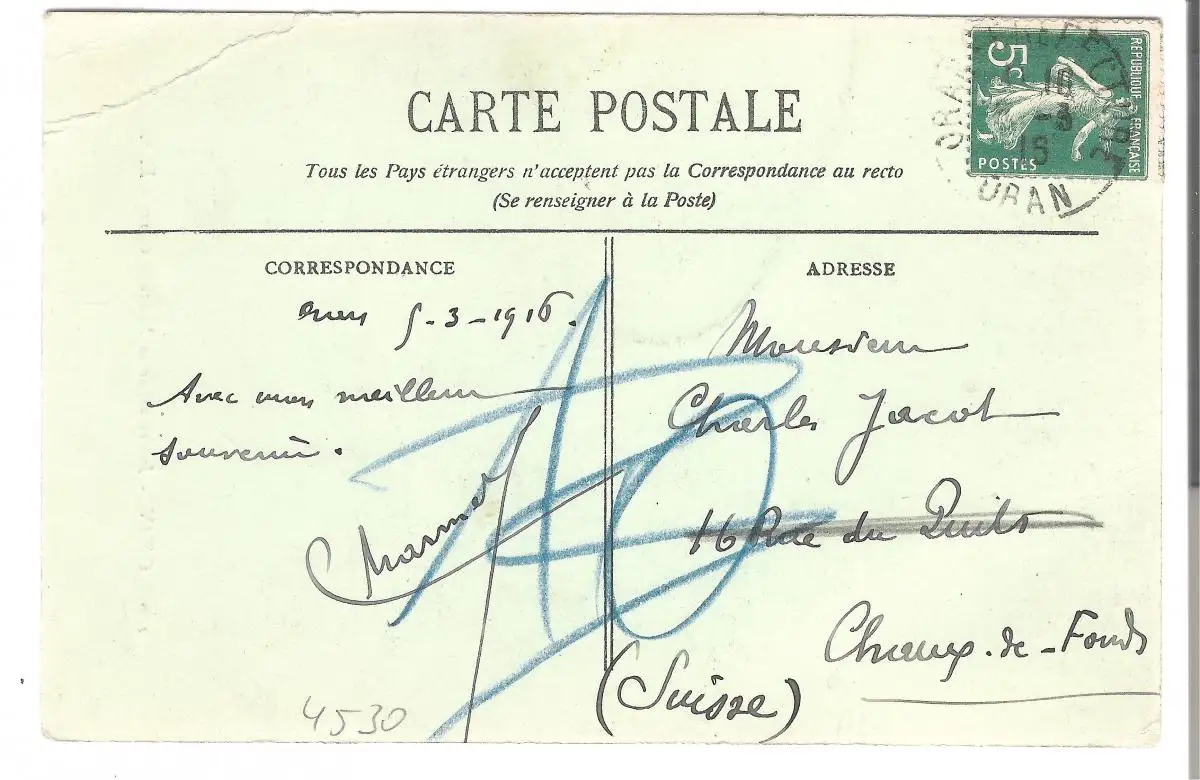 CARTE POSTALE
Tous les Pays étrangers n'acceptent pas la Correspondance au recto
(Se renseigner à la Poste)
5c
POSTES
REPUBLIQUE FRANÇAISE
ORAN
CORRESPONDANCE
5-3-1916.
Avec mon meilleur
souvenir.
ADRESSE
Monsieur
Charles Jacot
16 Rue du Puits
Chaux-de-Fonds
(Suisse)
10
4530